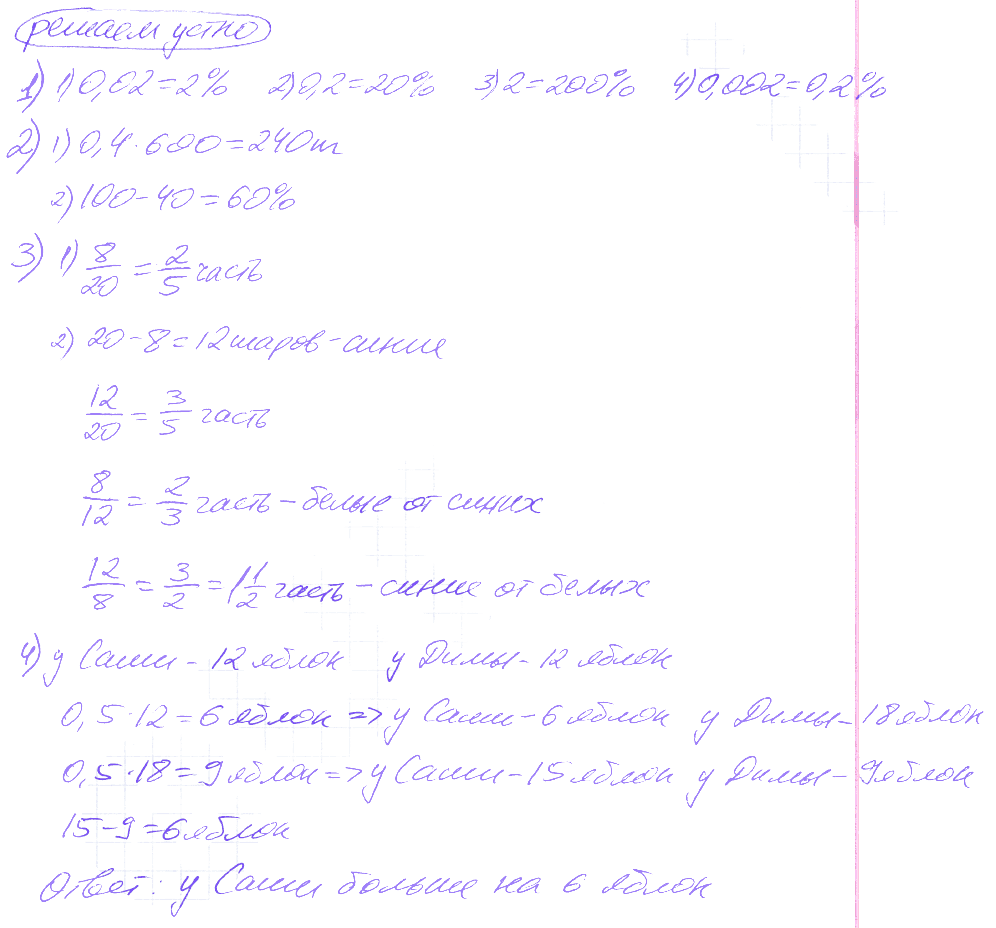 решаем устно
1) 1) 0,02=2% 2) 0,2=20% 3) 2=200% 4) 0,002=0,2%
2) 1) 0,4·600=240т
2) 100-40=60%
3) 1) 8/20 = 2/5 часть
2) 20-8=12 шаров - синие
12/20 = 3/5 часть
8/12 = 2/3 часть - белые от синих
12/8 = 3/2 = 1 1/2 часть - синие от белых
4) у Саши - 12 яблок у Димы - 12 яблок
0,5·12=6 яблок => у Саши - 6 яблок у Димы - 18 яблок
0,5·18=9 яблок => у Саши - 15 яблок у Димы - 9 яблок
15-9=6 яблок
Ответ: у Саши больше на 6 яблок